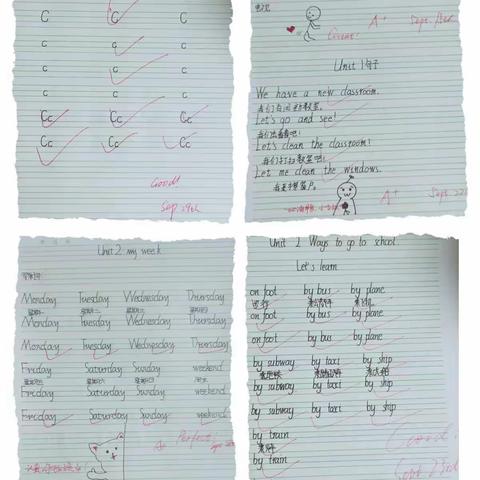 C C C
c c c
C C C
c c c
Cc Cc Cc
Cc Cc Cc
Good!
Sep. 29th
A+
Unit 1句子
We have a new classroom.
我们有间新教室。
Let's go and see!
我们去看看吧!
Let's clean the classroom!
我们打扫教室吧!
Let me clean the windows.
A+ Sept. 22
Unit 2 my week
Monday Tuesday Wednesday Thursday
星期一 星期二 星期三 星期四
Monday Tuesday Wednesday Thursday
Monday Tuesday Wednesday Thursday
Friday Saturday Sunday weekend
星期五 星期六 星期日 周末
Friday Saturday Sunday weekend
Friday Saturday Sunday weekend
A+ Perfect!
Unit 2 Ways to go to school
Let's learn
on foot by bus by plane
步行
on foot by bus by plane
on foot by bus by plane
by subway by taxi by ship
by subway by taxi by ship
by subway by taxi by ship
by train
by train
Good!
Sept 23rd